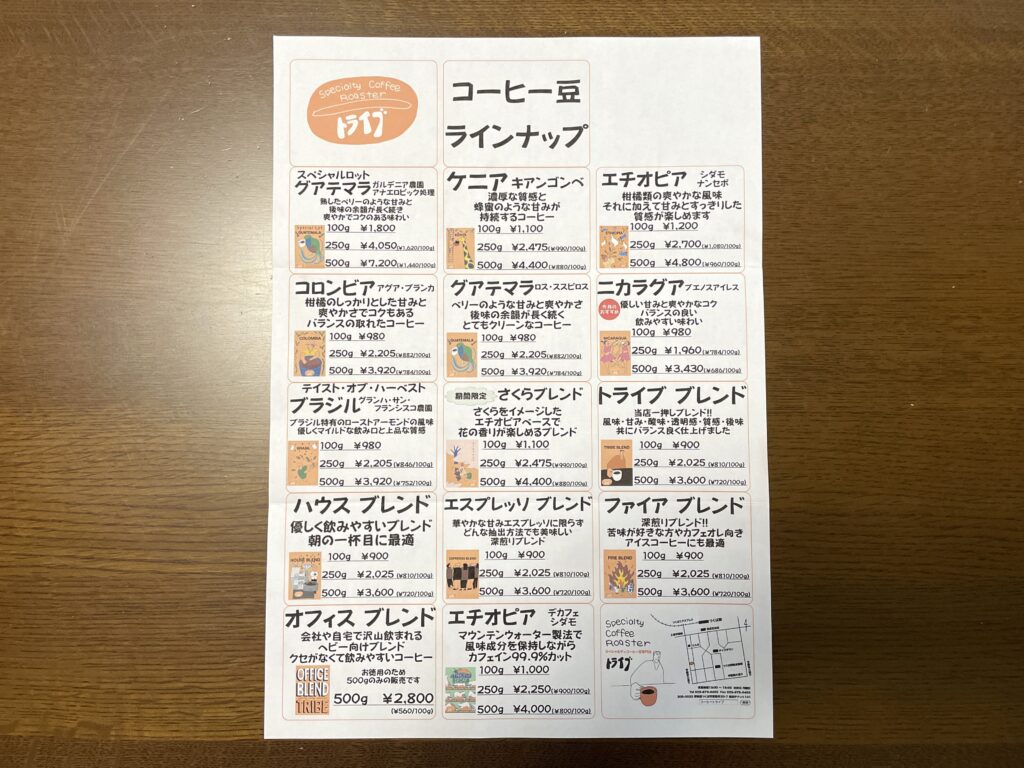 Specialty Coffee
Roaster
トライブ
コーヒー豆
ラインナップ
スペシャルロット
グアテマラ ガルデニア農園
アナエロビック処理
熟したベリーのような甘みと
後味の余韻が長く続き
爽やかでコクのある味わい
Special Lot
GUATEMALA
100g ¥1,800
250g ¥4,050(¥1,620/100g)
500g ¥7,200(¥1,440/100g)
ケニア キアンゴンベ
濃厚な質感と
蜂蜜のような甘みが
持続するコーヒー
KENYA
100g ¥1,100
250g ¥2,475(¥990/100g)
500g ¥4,400(¥880/100g)
エチオピア シダモ
ナンセボ
柑橘類の爽やかな風味
それに加えて甘みとすっきりした
質感が楽しめます
ETHIOPIA
100g ¥1,200
250g ¥2,700(¥1,080/100g)
500g ¥4,800(¥960/100g)
コロンビア アグア・ブランカ
柑橘のしっかりとした甘みと
爽やかさでコクもある
バランスの取れたコーヒー
COLOMBIA
100g ¥980
250g ¥2,205(¥882/100g)
500g ¥3,920(¥784/100g)
グアテマラ ロス・ススピロス
ベリーのような甘みと爽やかさ
後味の余韻が長く続く
とてもクリーンなコーヒー
GUATEMALA
100g ¥980
250g ¥2,205(¥882/100g)
500g ¥3,920(¥784/100g)
ニカラグア ブエノスアイレス
今月の
おすすめ
優しい甘みと爽やかなコク
バランスの良い
飲みやすい味わい
NICARAGUA
100g ¥980
250g ¥1,960(¥784/100g)
500g ¥3,430(¥686/100g)
テイスト・オブ・ハーベスト
ブラジル グランハ・サン・
フランシスコ農園
ブラジル特有のローストアーモンドの風味
優しくマイルドな飲み口と上品な質感
BRASIL
100g ¥980
250g ¥2,205(¥846/100g)
500g ¥3,920(¥752/100g)
期間限定 さくらブレンド
さくらをイメージした
エチオピアベースで
花の香りが楽しめるブレンド
100g ¥1,100
250g ¥2,475(¥990/100g)
500g ¥4,400(¥880/100g)
トライブ ブレンド
当店一押しブレンド!!
風味・甘み・酸味・透明感・質感・後味
共にバランス良く仕上げました
TRIBE BLEND
100g ¥900
250g ¥2,025(¥810/100g)
500g ¥3,600(¥720/100g)
ハウス ブレンド
優しく飲みやすいブレンド
朝の一杯目に最適
HOUSE BLEND
100g ¥900
250g ¥2,025(¥810/100g)
500g ¥3,600(¥720/100g)
エスプレッソ ブレンド
華やかな甘みエスプレッソに限らず
どんな抽出方法でも美味しい
深煎りブレンド
ESPRESSO BLEND
100g ¥900
250g ¥2,025(¥810/100g)
500g ¥3,600(¥720/100g)
ファイア ブレンド
深煎りブレンド!!
苦味が好きな方やカフェオレ向き
アイスコーヒーにも最適
FIRE BLEND
100g ¥900
250g ¥2,025(¥810/100g)
500g ¥3,600(¥720/100g)
オフィス ブレンド
会社や自宅で沢山飲まれる
ヘビー向けブレンド
クセがなくて飲みやすいコーヒー
OFFICE
BLEND
TRIBE
お徳用のため
500gのみの販売です
500g ¥2,800
(¥560/100g)
エチオピア デカフェ
シダモ
マウンテンウォーター製法で
風味成分を保持しながら
カフェイン99.9%カット
100g ¥1,000
250g ¥2,250(¥900/100g)
500g ¥4,000(¥800/100g)
Specialty
Coffee
Roaster
トライブ